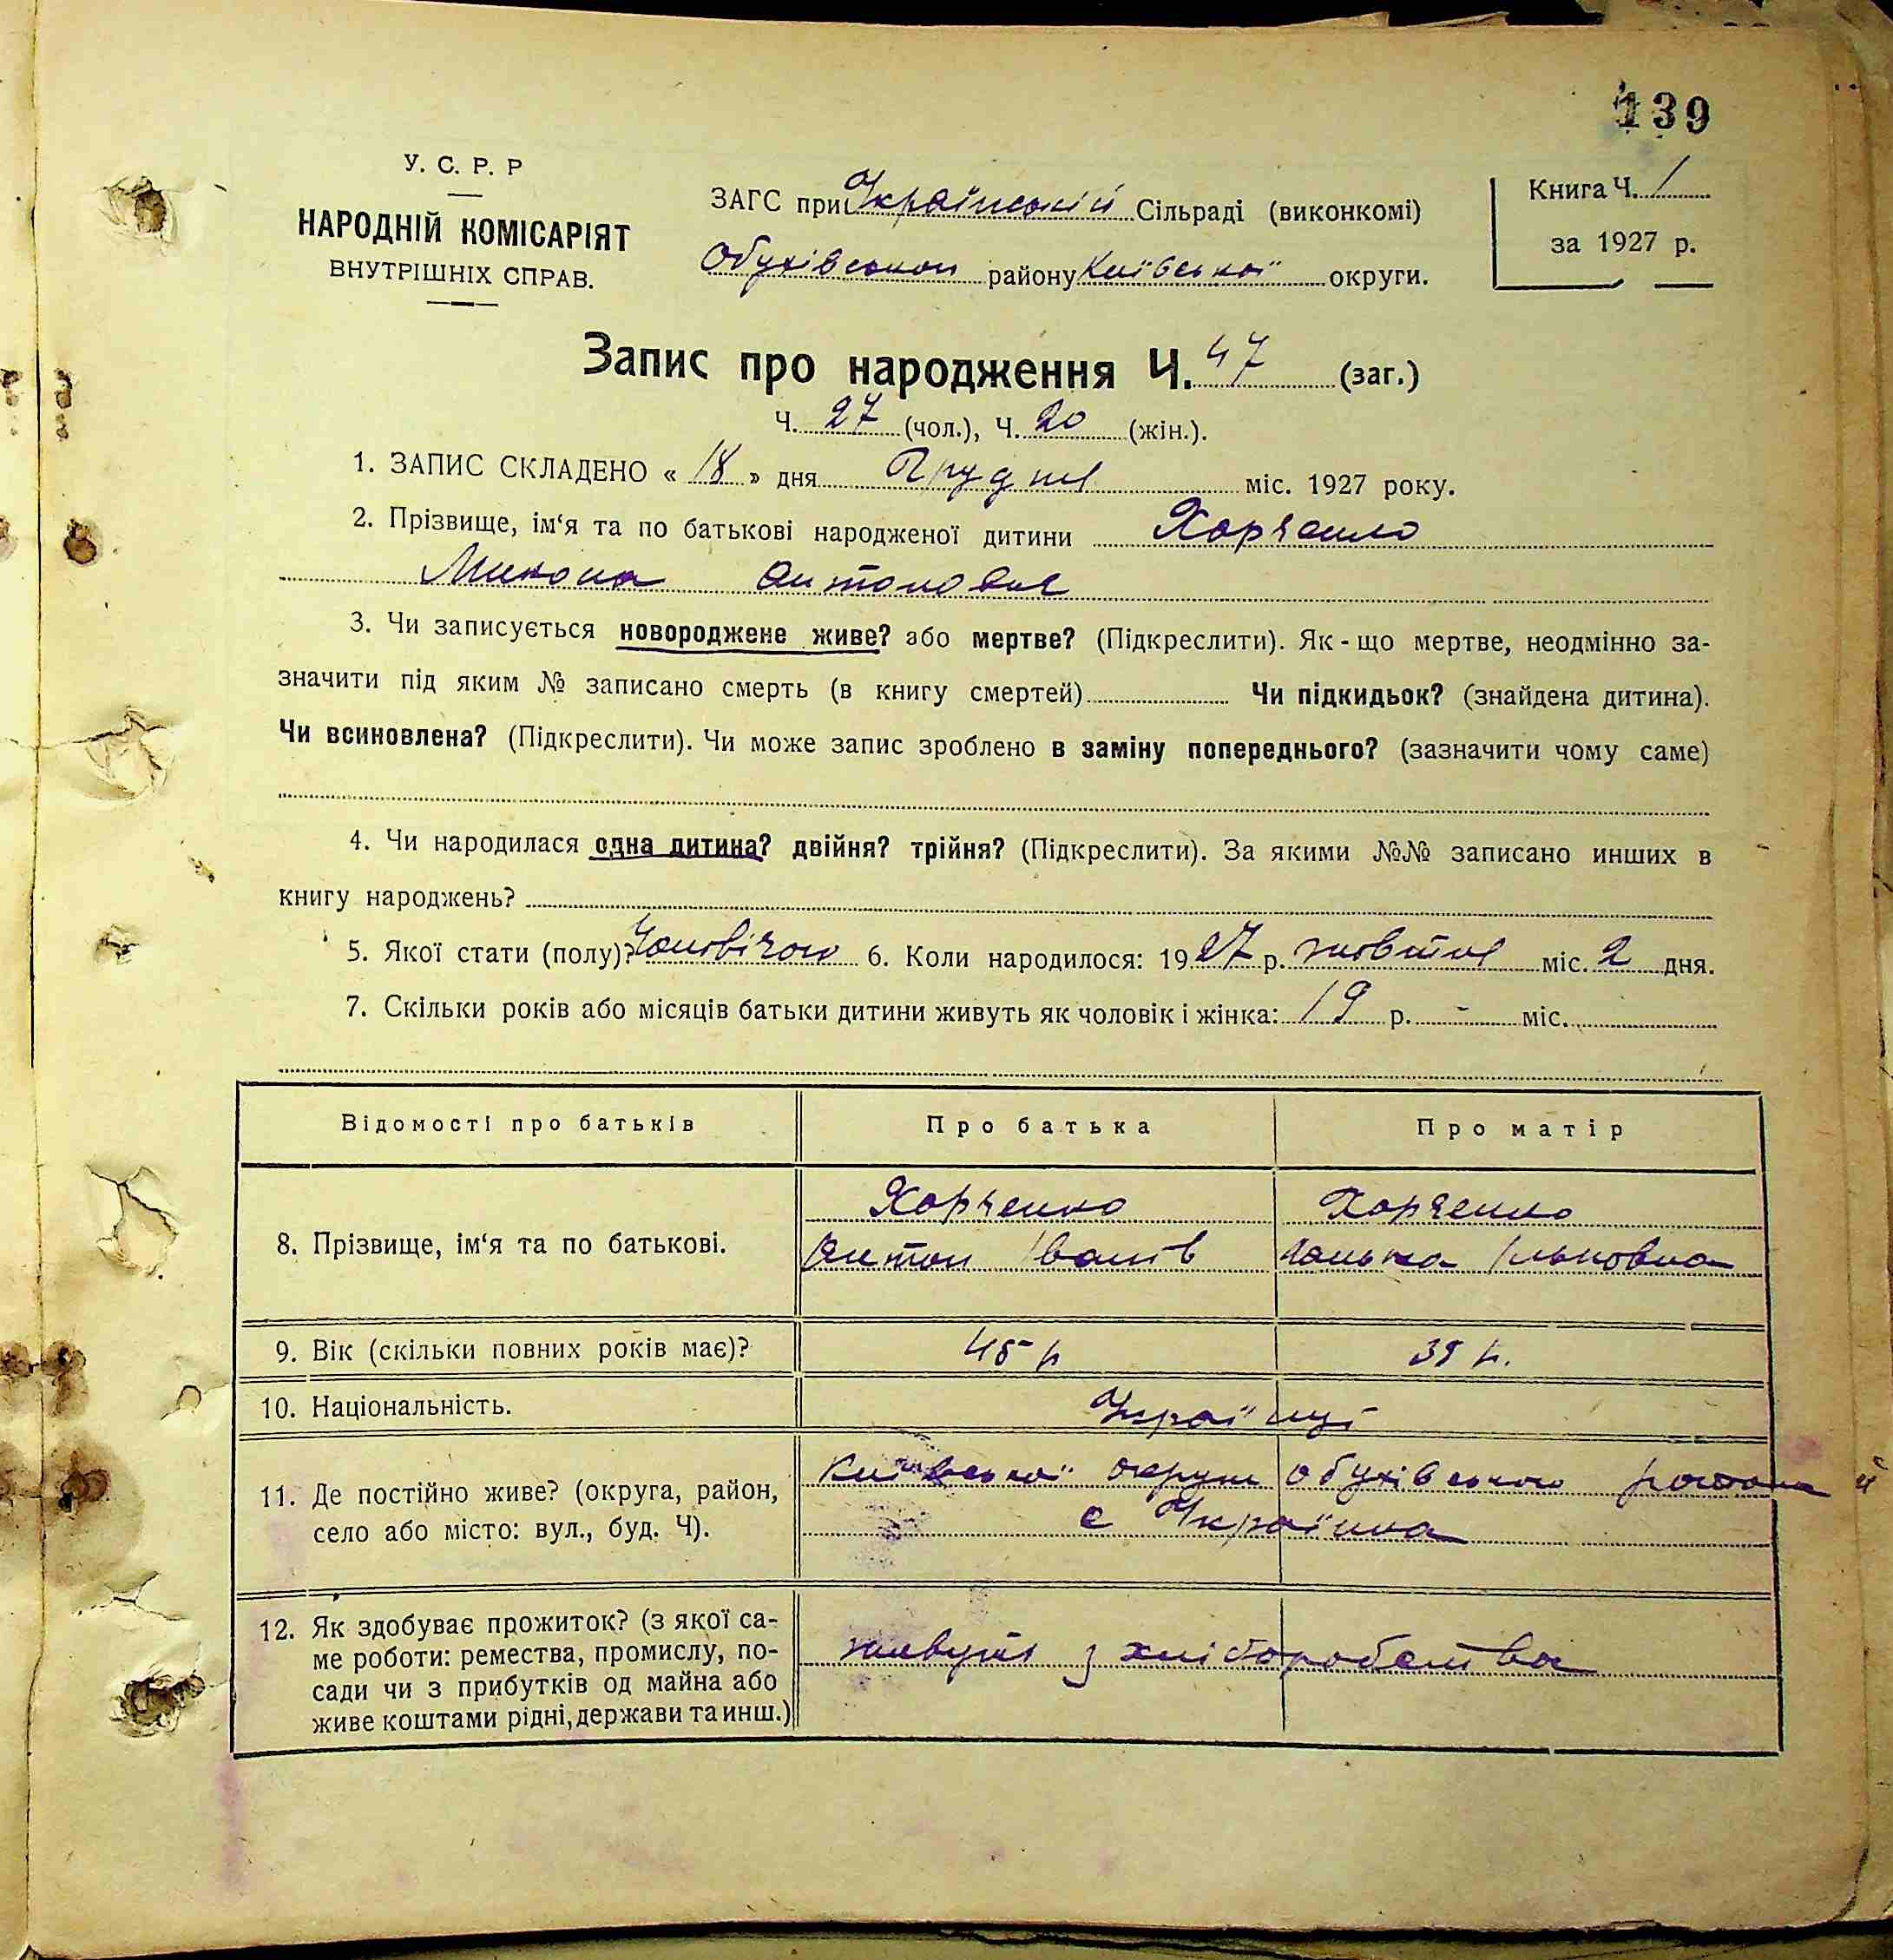 139
У. С. Р. Р
НАРОДНІЙ КОМІСАРІЯТ
ВНУТРІШНІХ СПРАВ.
ЗАГС при Українській Сільраді (виконкомі)
Обухівського району Київської округи.
Книга Ч. 1
за 1927 р.
Запис про народження Ч. 47 (заг.)
Ч. 27 (чол.), Ч. 20 (жін.).
1. ЗАПИС СКЛАДЕНО « 18 » дня Грудня міс. 1927 року.
2. Прізвище, ім‘я та по батькові народженої дитини Харченко
Микола Антонович
3. Чи записується новороджене живе? або мертве? (Підкреслити). Як - що мертве, неодмінно за-
значити під яким № записано смерть (в книгу смертей) Чи підкидьок? (знайдена дитина).
Чи всиновлена? (Підкреслити). Чи може запис зроблено в заміну попереднього? (зазначити чому саме)
4. Чи народилася одна дитина? двійня? трійня? (Підкреслити). За якими №№ записано инших в
книгу народжень?
5. Якої стати (полу)? Чоловічою 6. Коли народилося: 1927 р. жовтня міс. 2 дня.
7. Скільки років або місяців батьки дитини живуть як чоловік і жінка: 19 р. - міс.
Відомості про батьків Про батька Про матір
8. Прізвище, ім‘я та по батькові.
Харченко Харченко
Антон Іванів Ільковна
9. Вік (скільки повних років має)? 45 р 38 р.
10. Національність. Українці
11. Де постійно живе? (округа, район,
село або місто: вул., буд. Ч).
Київської округи Обухівського району
с Українка
12. Як здобуває прожиток? (з якої са-
ме роботи: ремества, промислу, по-
сади чи з прибутків од майна або
живе коштами рідні, держави та инш.)
живуть з хліборобства